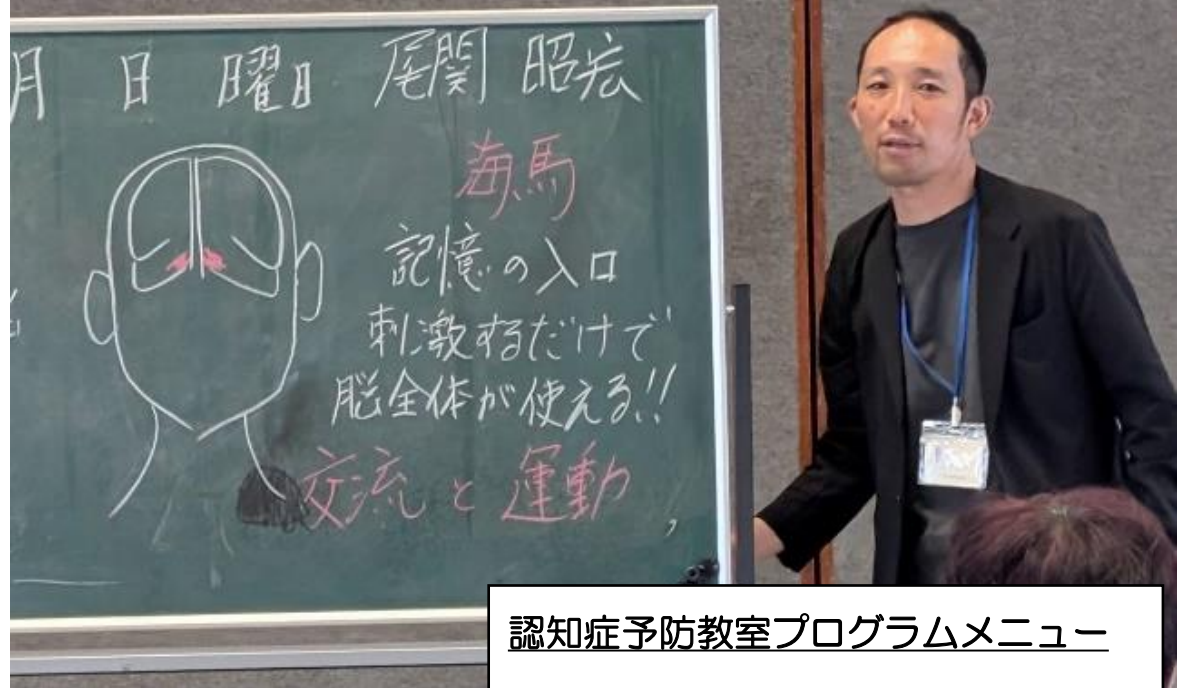 月 日 曜日 尾関 昭宏
海馬
記憶の入口
刺激するだけで
脳全体が使える!!
交流と運動
認知症予防教室プログラムメニュー